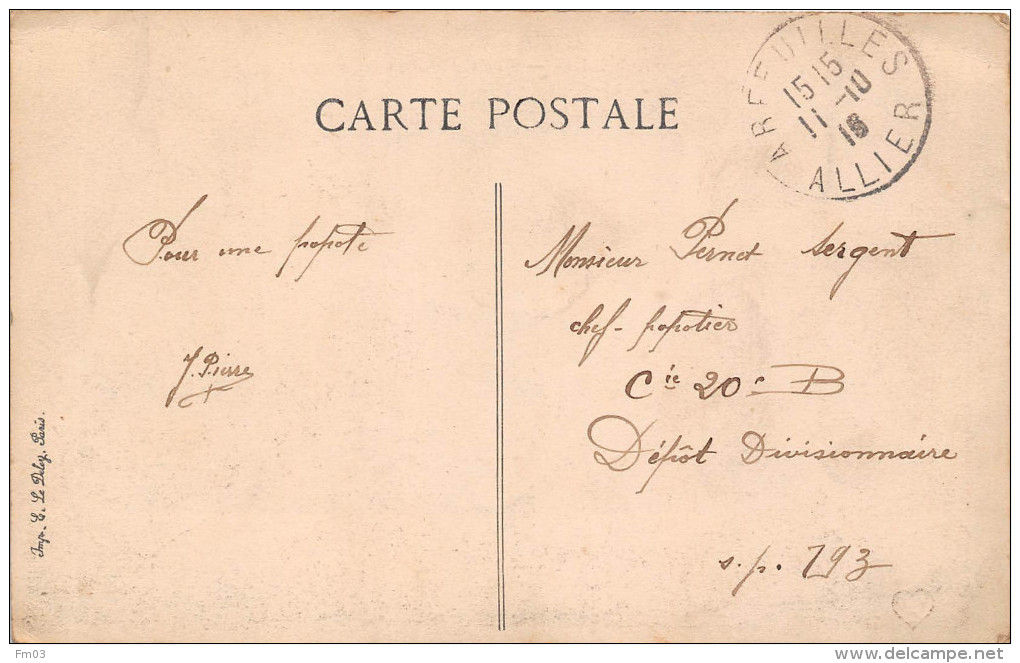 CARTE POSTALE
ARFEUILLES
15 15
11 -10
18
ALLIER
Pour une popote
J. Pierre
Monsieur Pernot Sergent
chef-popotier
Cie 20e B
Dépôt Divisionnaire
s.p. 193
Imp. E. Le Deley, Paris.
Fm03
delcampe.net